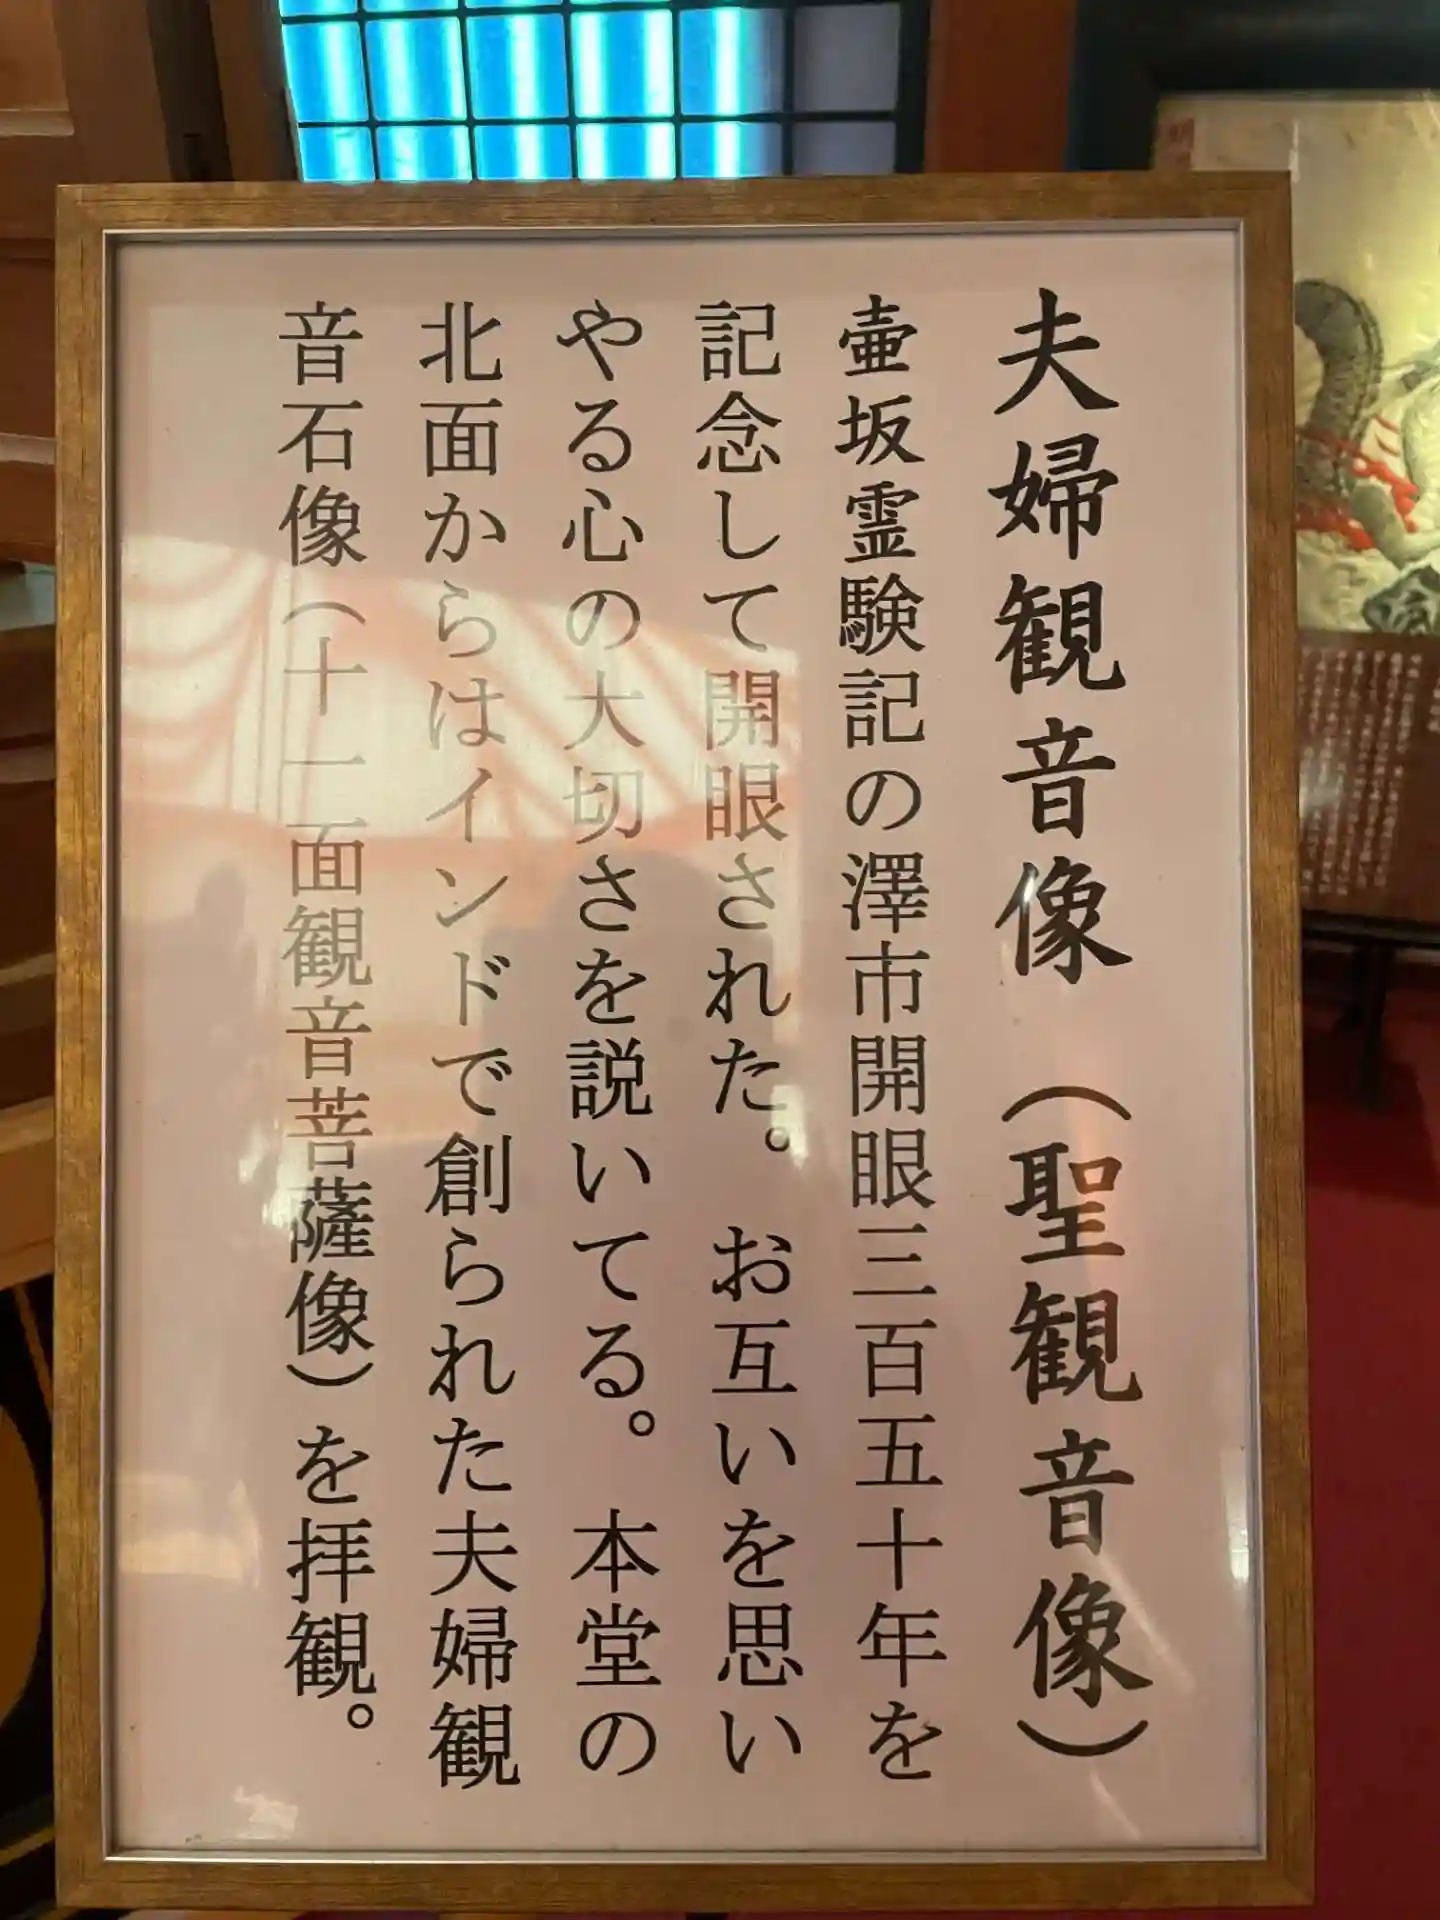 夫婦観音像（聖観音像）
壷坂霊験記の澤市開眼三百五十年を
記念して開眼された。お互いを思い
やる心の大切さを説いてる。本堂の
北面からはインドで創られた夫婦観
音石像（十一面観音菩薩像）を拝観。